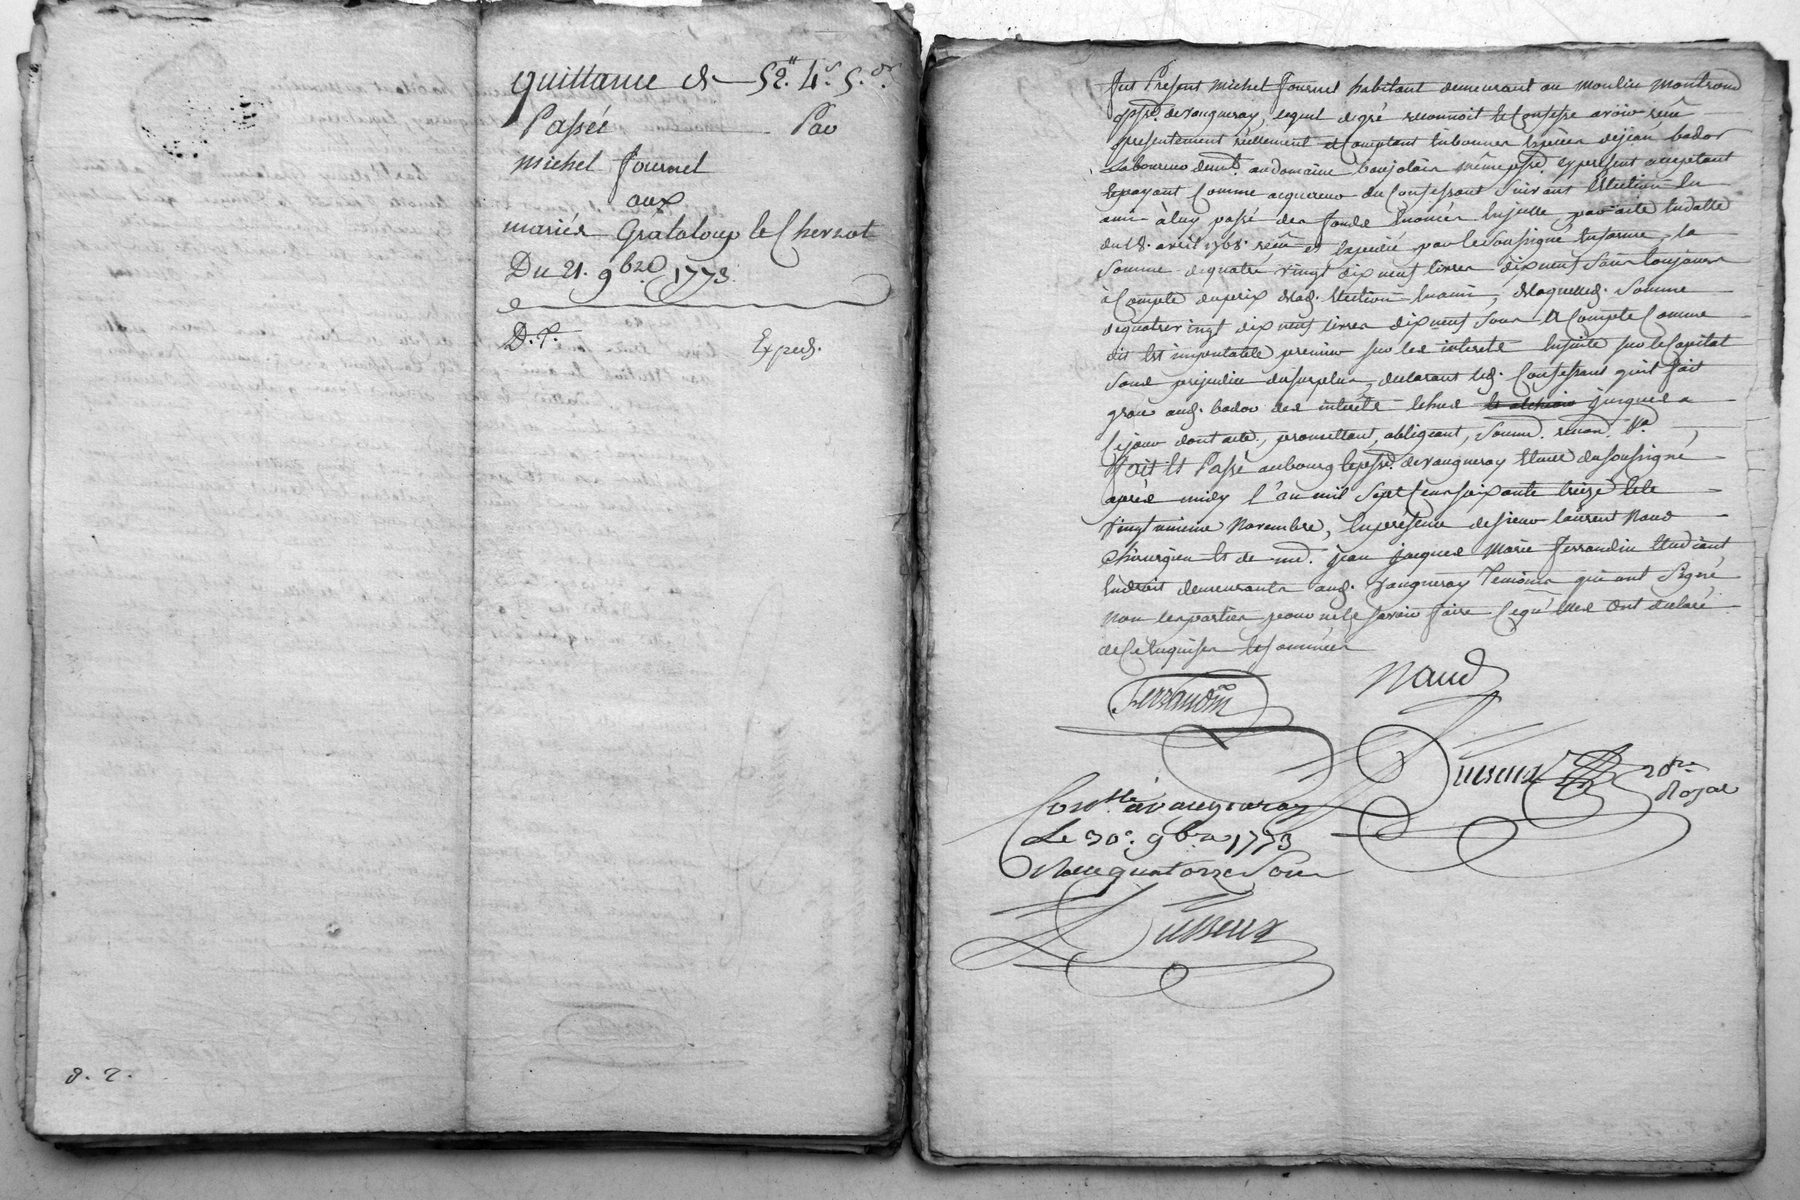 quittance de 52ᵗᵗ 4ˢ 5ᵈʳˢ.
Passée Par
Michel Fournel
aux
mariés Grataloup et Cherzot
Du 21. 9bre 1773.
D. P. Exped.
8. 2.
fut Présent Michel Fournel habitant demeurant au moulin Montrond
psse. de vaugneray, lequel de gré reconnoit et Confesse avoir reçu
presentement réellement et Comptant en bonnes Especes de jean bador
Laboureur demt. au domaine beaujolais même psse. cy present acceptant
et payant Comme acquereur du Confessant suivant Election en
amis à luy passé des fonds enoncés en icelle, par acte en datte
du 18. avril 1768. reçu et expedié par le soussigné en forme, la
Somme de quatre vingt dix neuf livres dix neuf sous toujours
à Compte du prix de lad. Election en ami, de laquelle d. Somme
de quatre vingt dix neuf livres dix neuf sous et Compte Comme
dit Est imputable premier sur les interets Ensuite sur le Capital
sans prejudice du surplus, declarant led. Confessant qu'il fait
grace aud. bador des interets echus jusques a
ce jour dont acte, promettant, obligeant, soumd. renond. &a
Fait Et Passé au bourg et psse. de vaugneray Etude du soussigné
après midy l'an mil Sept Cent soixante treize et le
vingt unieme Novembre, En presence de sieur laurent Naud
chirurgien Et de md. jean jacques Marie Ferrandin Etudiant
En droit demeurants aud. vaugneray Temoins qui ont Signé
Non les parties pour ne le savoir faire Ce qu'elles ont declaré
de Ce Enquises et sommées
Ferrandin
Naud
Dusseux
Royal
Conllé à vaugneray
Le 30e. 9bre 1773
Reçu quatorze Sous
Dusseux